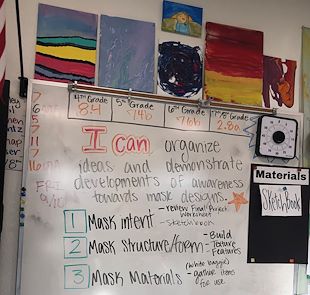 4th Grade
5th Grade
6th Grade
7th/8th Grade
8.4
74b
76b
2.8a
I can organize
ideas and demonstrate
developments of awareness
towards mask designs.
1 Mask intent - review Final Project
Worksheet
- sketchbook
2 Mask Structure/Form - Build
- Texture
Features
3 Mask Materials - (White baggie)
- gather items
for use
FRI
9/10
Materials
Sketchbook